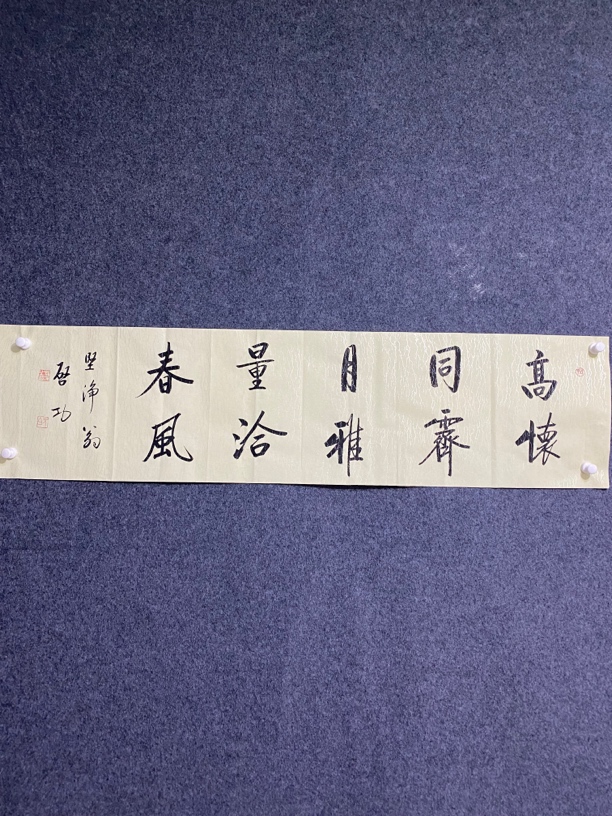 高懷
同霽
月雅
量洽
春風
堅淨翁
啓功